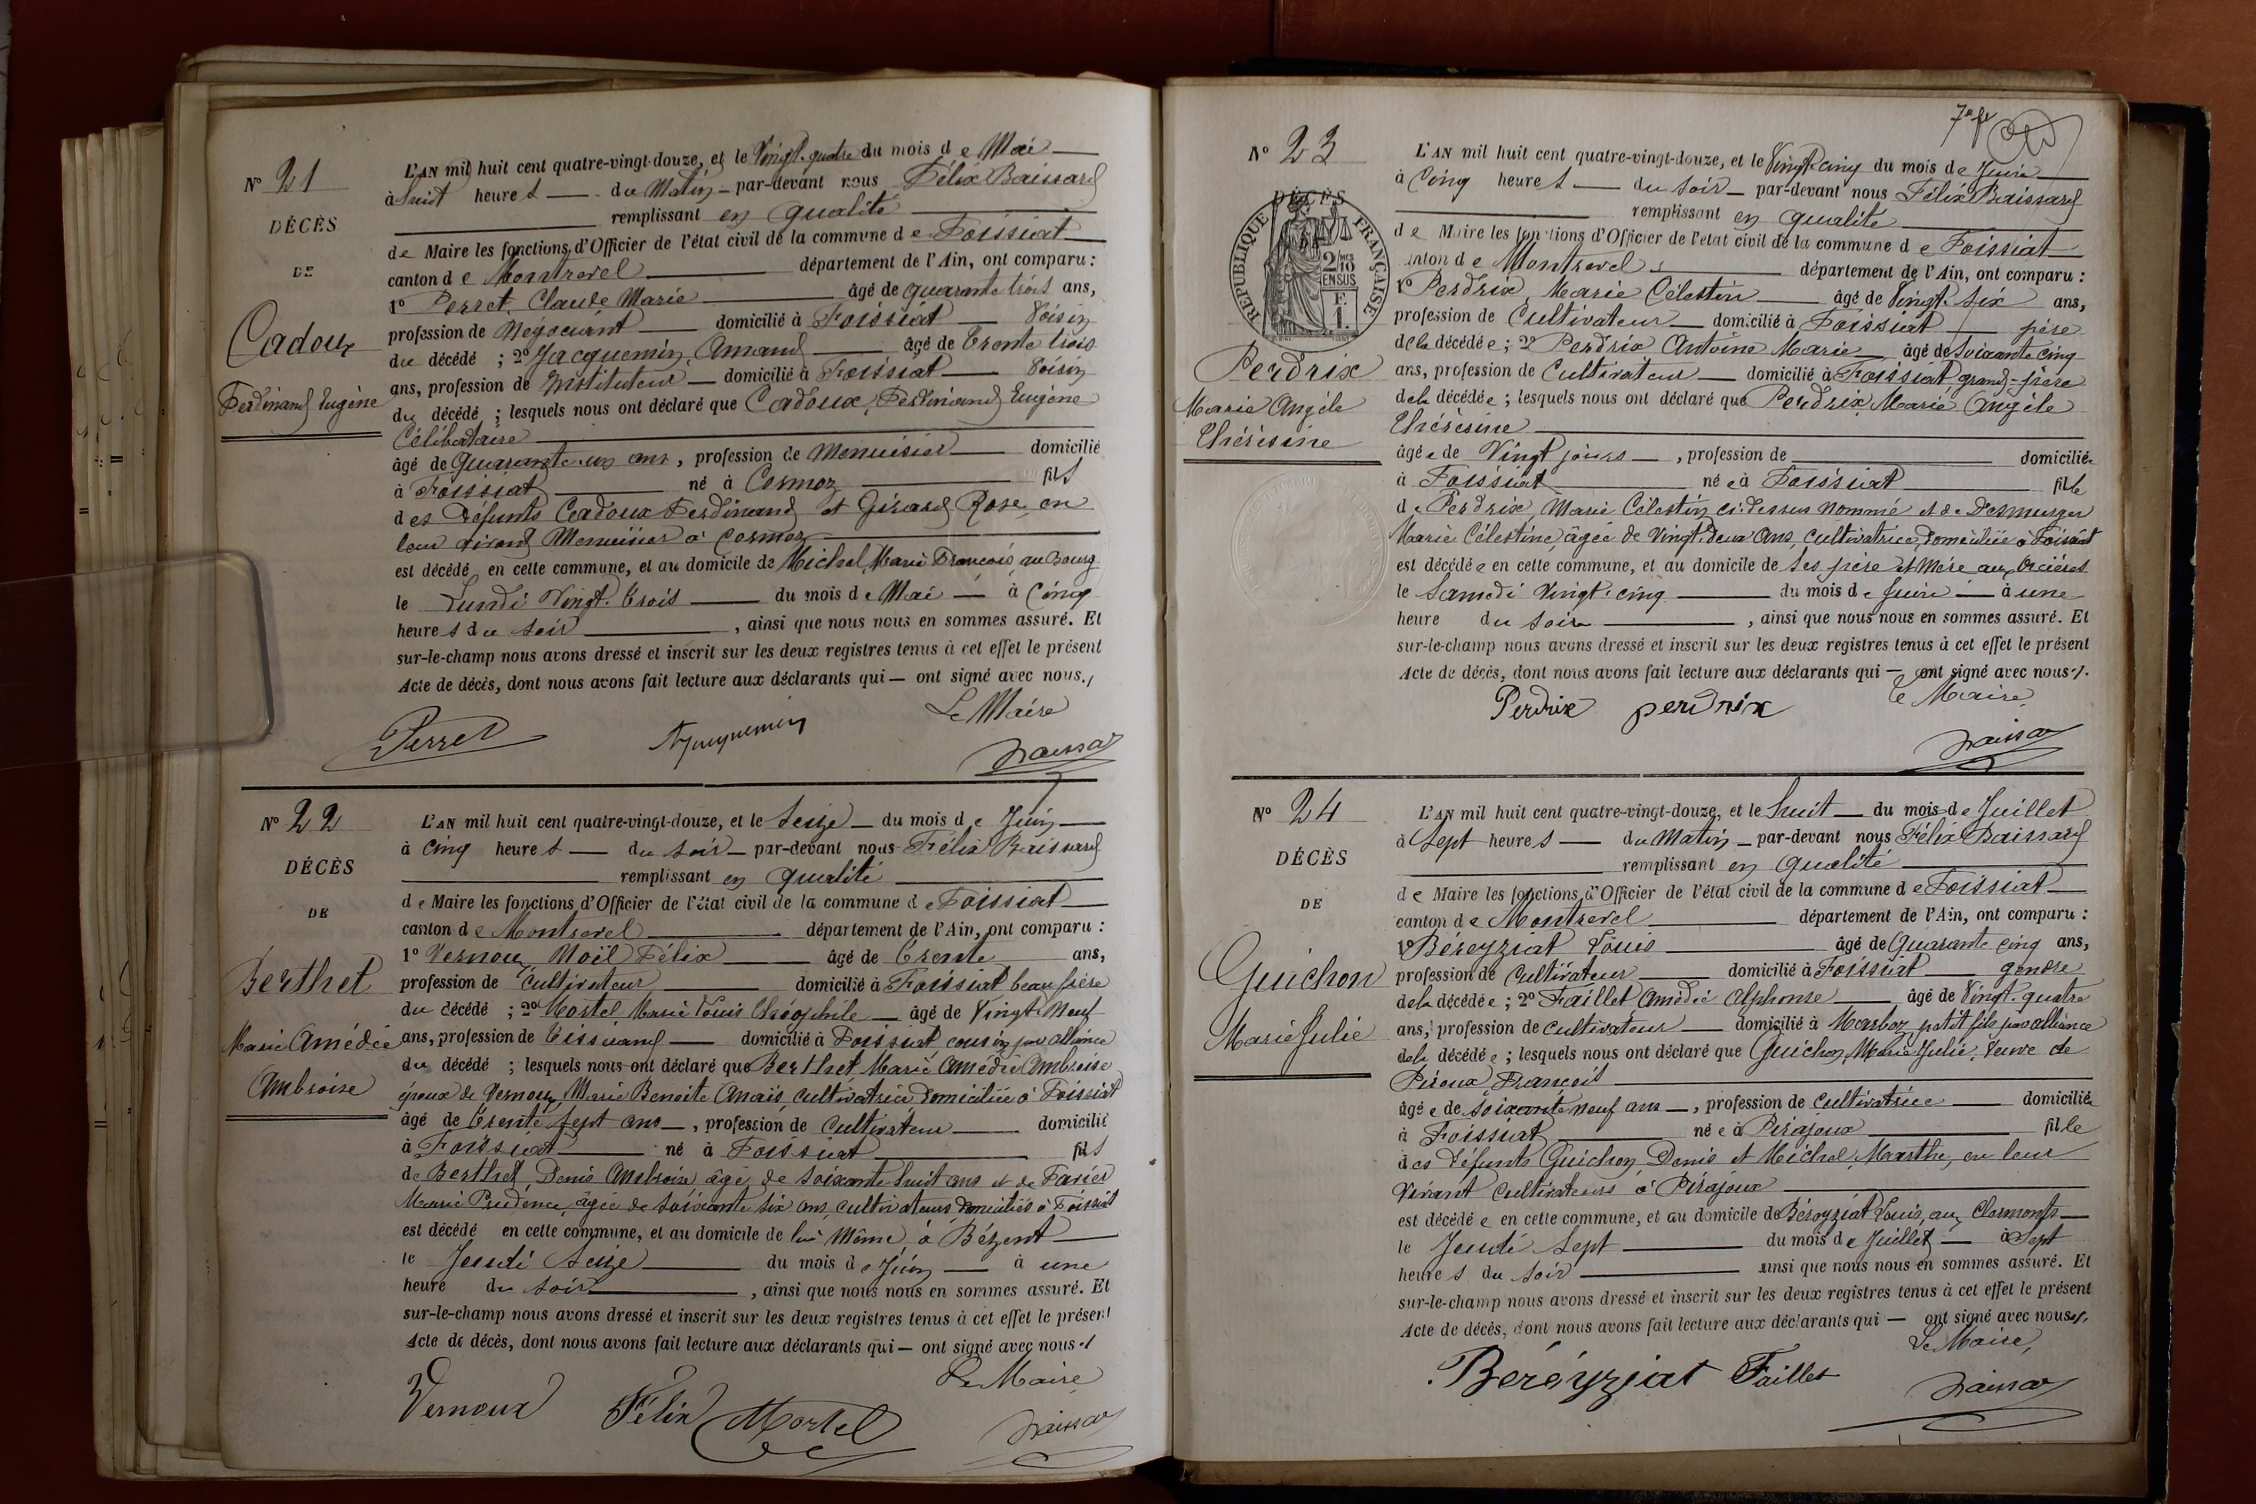 N° 21
DÉCÈS
DE
Cadoux
Ferdinand Eugène
L'AN mil huit cent quatre-vingt-douze, et le Vingt-quatre du mois de Mai
à huit heures du Matin par-devant nous Félix Baissard
remplissant en qualité
de Maire les fonctions d'Officier de l'état civil de la commune de Foissiat
canton de Montrevel département de l'Ain, ont comparu :
1° Perret Claude Marie âgé de quarante trois ans,
profession de Négociant domicilié à Foissiat Voisin
du décédé ; 2° Jacquemin Amand âgé de trente trois
ans, profession de Instituteur domicilié à Foissiat Voisin
du décédé ; lesquels nous ont déclaré que Cadoux, Ferdinand Eugène
Célibataire
âgé de quarante un ans, profession de Menuisier domicilié
à Foissiat né à Cormoz fils
des défunts Cadoux Ferdinand et Girard Rose, en
leur vivant Menuisier à Cormoz
est décédé en cette commune, et au domicile de Michel Marie François, au Bourg
le Lundi Vingt-trois du mois de Mai à Cinq
heures du soir, ainsi que nous nous en sommes assuré. Et
sur-le-champ nous avons dressé et inscrit sur les deux registres tenus à cet effet le présent
Acte de décès, dont nous avons fait lecture aux déclarants qui — ont signé avec nous.
Le Maire
Perret Ajacquemin Baissard
N° 22
DÉCÈS
DE
Berthet
Marie Amédée
Ambroise
L'AN mil huit cent quatre-vingt-douze, et le Seize du mois de Juin
à cinq heures du soir par-devant nous Félix Baissard
remplissant en qualité
de Maire les fonctions d'Officier de l'état civil de la commune de Foissiat
canton de Montrevel département de l'Ain, ont comparu :
1° Vernoux Noël Félix âgé de trente ans,
profession de Cultivateur domicilié à Foissiat beau frère
du décédé ; 2° Mortel Marie Louis Théophile âgé de Vingt-Neuf
ans, profession de Tisserand domicilié à Foissiat cousin par alliance
du décédé ; lesquels nous ont déclaré que Berthet Marie Amédée Ambroise
époux de Vernoux Marie Benoite Anaïs, cultivatrice domiciliée à Foissiat
âgé de trente sept ans, profession de Cultivateur domicilié
à Foissiat né à Foissiat fils
de Berthet Denis Ambroise âgé de soixante-huit ans et de
Marie Prudence, âgée de soixante six ans, cultivateurs domiciliés à Foissiat
est décédé en cette commune, et au domicile de lui Même, à Bézent
le Jeudi Seize du mois de Juin à une
heure du soir, ainsi que nous nous en sommes assuré. Et
sur-le-champ nous avons dressé et inscrit sur les deux registres tenus à cet effet le présent
Acte de décès, dont nous avons fait lecture aux déclarants qui — ont signé avec nous
Le Maire
Vernoux Félix Mortel Baissard
7e ft
N° 23
DÉCÈS
RÉPUBLIQUE FRANÇAISE
2/10 EN SUS
Perdrix
Marie Angèle
Thérésine
L'AN mil huit cent quatre-vingt-douze, et le Vingt-cinq du mois de Juin
à Cinq heures du soir par-devant nous Félix Baissard
remplissant en qualité
de Maire les fonctions d'Officier de l'état civil de la commune de Foissiat
canton de Montrevel département de l'Ain, ont comparu :
1° Perdrix, Marie Célestin âgé de Vingt-six ans,
profession de Cultivateur domicilié à Foissiat père
de la décédée ; 2° Perdrix Antoine Marie âgé de Soixante cinq
ans, profession de Cultivateur domicilié à Foissiat grand-père
de la décédée ; lesquels nous ont déclaré que Perdrix Marie Angèle
Thérésine
âgée de Vingt jours, profession de domiciliée
à Foissiat née à Foissiat fille
de Perdrix, Marie Célestin, ci-dessus nommé et de Desmurger
Marie Célestine, âgée de Vingt-deux ans, cultivatrice, domiciliée à Foissiat
est décédée en cette commune, et au domicile de ses père et Mère aux
le Samedi Vingt-cinq du mois de Juin à une
heure du soir, ainsi que nous nous en sommes assuré. Et
sur-le-champ nous avons dressé et inscrit sur les deux registres tenus à cet effet le présent
Acte de décès, dont nous avons fait lecture aux déclarants qui — ont signé avec nous.
Le Maire
Perdrix perdrix
Baissard
N° 24
DÉCÈS
DE
Guichon
Marie Julie
L'AN mil huit cent quatre-vingt-douze, et le huit du mois de Juillet
à Sept heures du Matin par-devant nous Félix Baissard
remplissant en qualité
de Maire les fonctions d'Officier de l'état civil de la commune de Foissiat
canton de Montrevel département de l'Ain, ont comparu :
1° Béreyziat Louis âgé de Quarante cinq ans,
profession de Cultivateur domicilié à Foissiat gendre
de la décédée ; 2° Faillet Amédée Alphonse âgé de Vingt-quatre
ans, profession de cultivateur domicilié à Marboz petit fils par alliance
de la décédée ; lesquels nous ont déclaré que Guichon, Marie Julie, Veuve de
Piroux François
âgée de soixante neuf ans, profession de cultivatrice domiciliée
à Foissiat née à Pirajoux fille
des défunts Guichon, Denis et Michel, Marthe, en leur
vivant cultivateurs à Pirajoux
est décédée en cette commune, et au domicile de Béreyziat Louis, aux Clermonts
le Jeudi Sept du mois de Juillet à Sept
heures du soir ainsi que nous nous en sommes assuré. Et
sur-le-champ nous avons dressé et inscrit sur les deux registres tenus à cet effet le présent
Acte de décès, dont nous avons fait lecture aux déclarants qui — ont signé avec nous.
Le Maire,
Beréyziat Faillet Baissard